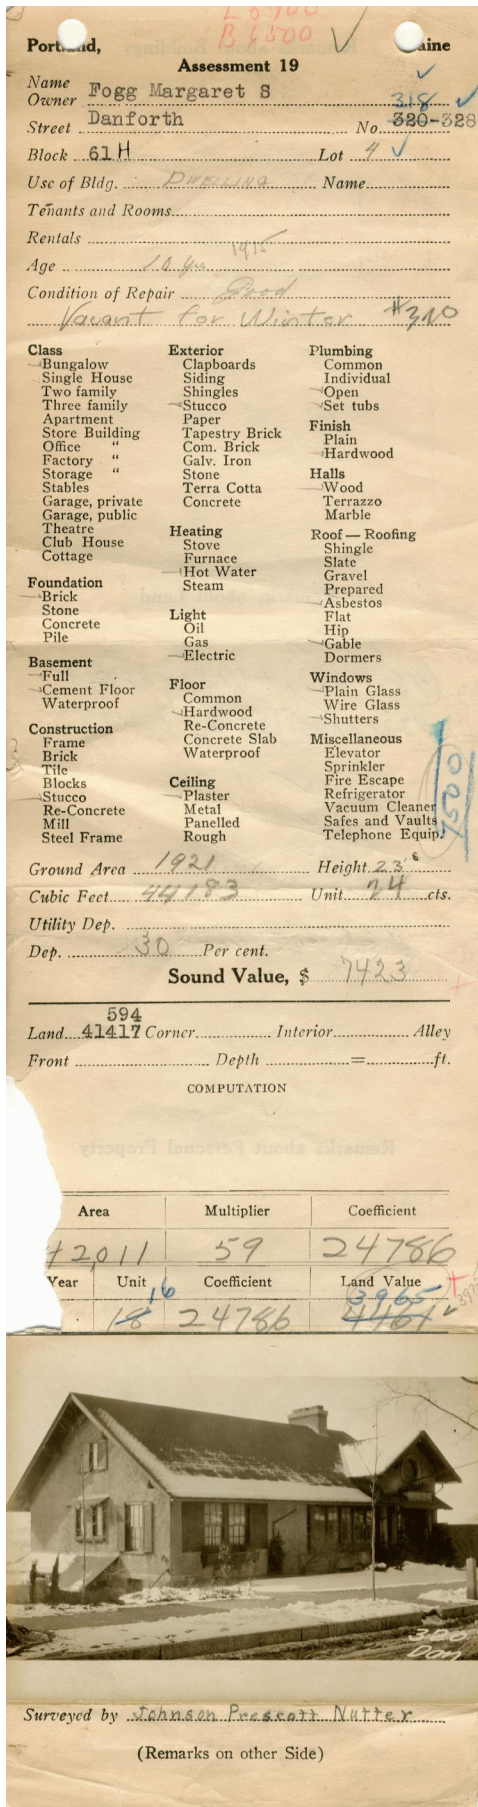 L 5900
B 6500
Portland, Maine
Assessment 19
Name
Owner Fogg Margaret S
318
Street Danforth No. 320-328
Block 61 H Lot 4
Use of Bldg. DWELLING Name
Tenants and Rooms
Rentals
1915
Age 10 yrs
Condition of Repair Good
Vacant for Winter #320
Class
Bungalow
Single House
Two family
Three family
Apartment
Store Building
Office "
Factory "
Storage "
Stables
Garage, private
Garage, public
Theatre
Club House
Cottage
Foundation
Brick
Stone
Concrete
Pile
Basement
Full
Cement Floor
Waterproof
Construction
Frame
Brick
Tile
Blocks
Stucco
Re-Concrete
Mill
Steel Frame
Exterior
Clapboards
Siding
Shingles
Stucco
Paper
Tapestry Brick
Com. Brick
Galv. Iron
Stone
Terra Cotta
Concrete
Heating
Stove
Furnace
Hot Water
Steam
Light
Oil
Gas
Electric
Floor
Common
Hardwood
Re-Concrete
Concrete Slab
Waterproof
Ceiling
Plaster
Metal
Panelled
Rough
Plumbing
Common
Individual
Open
Set tubs
Finish
Plain
Hardwood
Halls
Wood
Terrazzo
Marble
Roof — Roofing
Shingle
Slate
Gravel
Prepared
Asbestos
Flat
Hip
Gable
Dormers
Windows
Plain Glass
Wire Glass
Shutters
Miscellaneous
Elevator
Sprinkler
Fire Escape
Refrigerator
Vacuum Cleaner
Safes and Vaults
Telephone Equip.
7500
Ground Area 1921 Height 23'
Cubic Feet 44183 Unit 24 cts.
Utility Dep.
Dep. 30 Per cent.
Sound Value, $ 7423
594
Land 41417 Corner Interior Alley
Front Depth = ft.
COMPUTATION
Area Multiplier Coefficient
42,011 59 24786
Year Unit Coefficient Land Value
16 3965
18 24786 4461
320
Dan
Surveyed by Johnson Prescott Nutter
(Remarks on other Side)